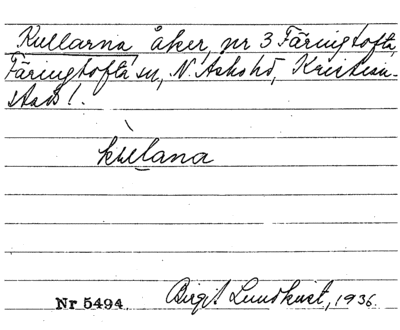 Kullarna åker, nr 3 Färingtofta,
Färingtofta sn, N. Åsbo hd, Kristian-
stads l.
kùllana
Nr 5494. Birgit Lundkvist, 1936.